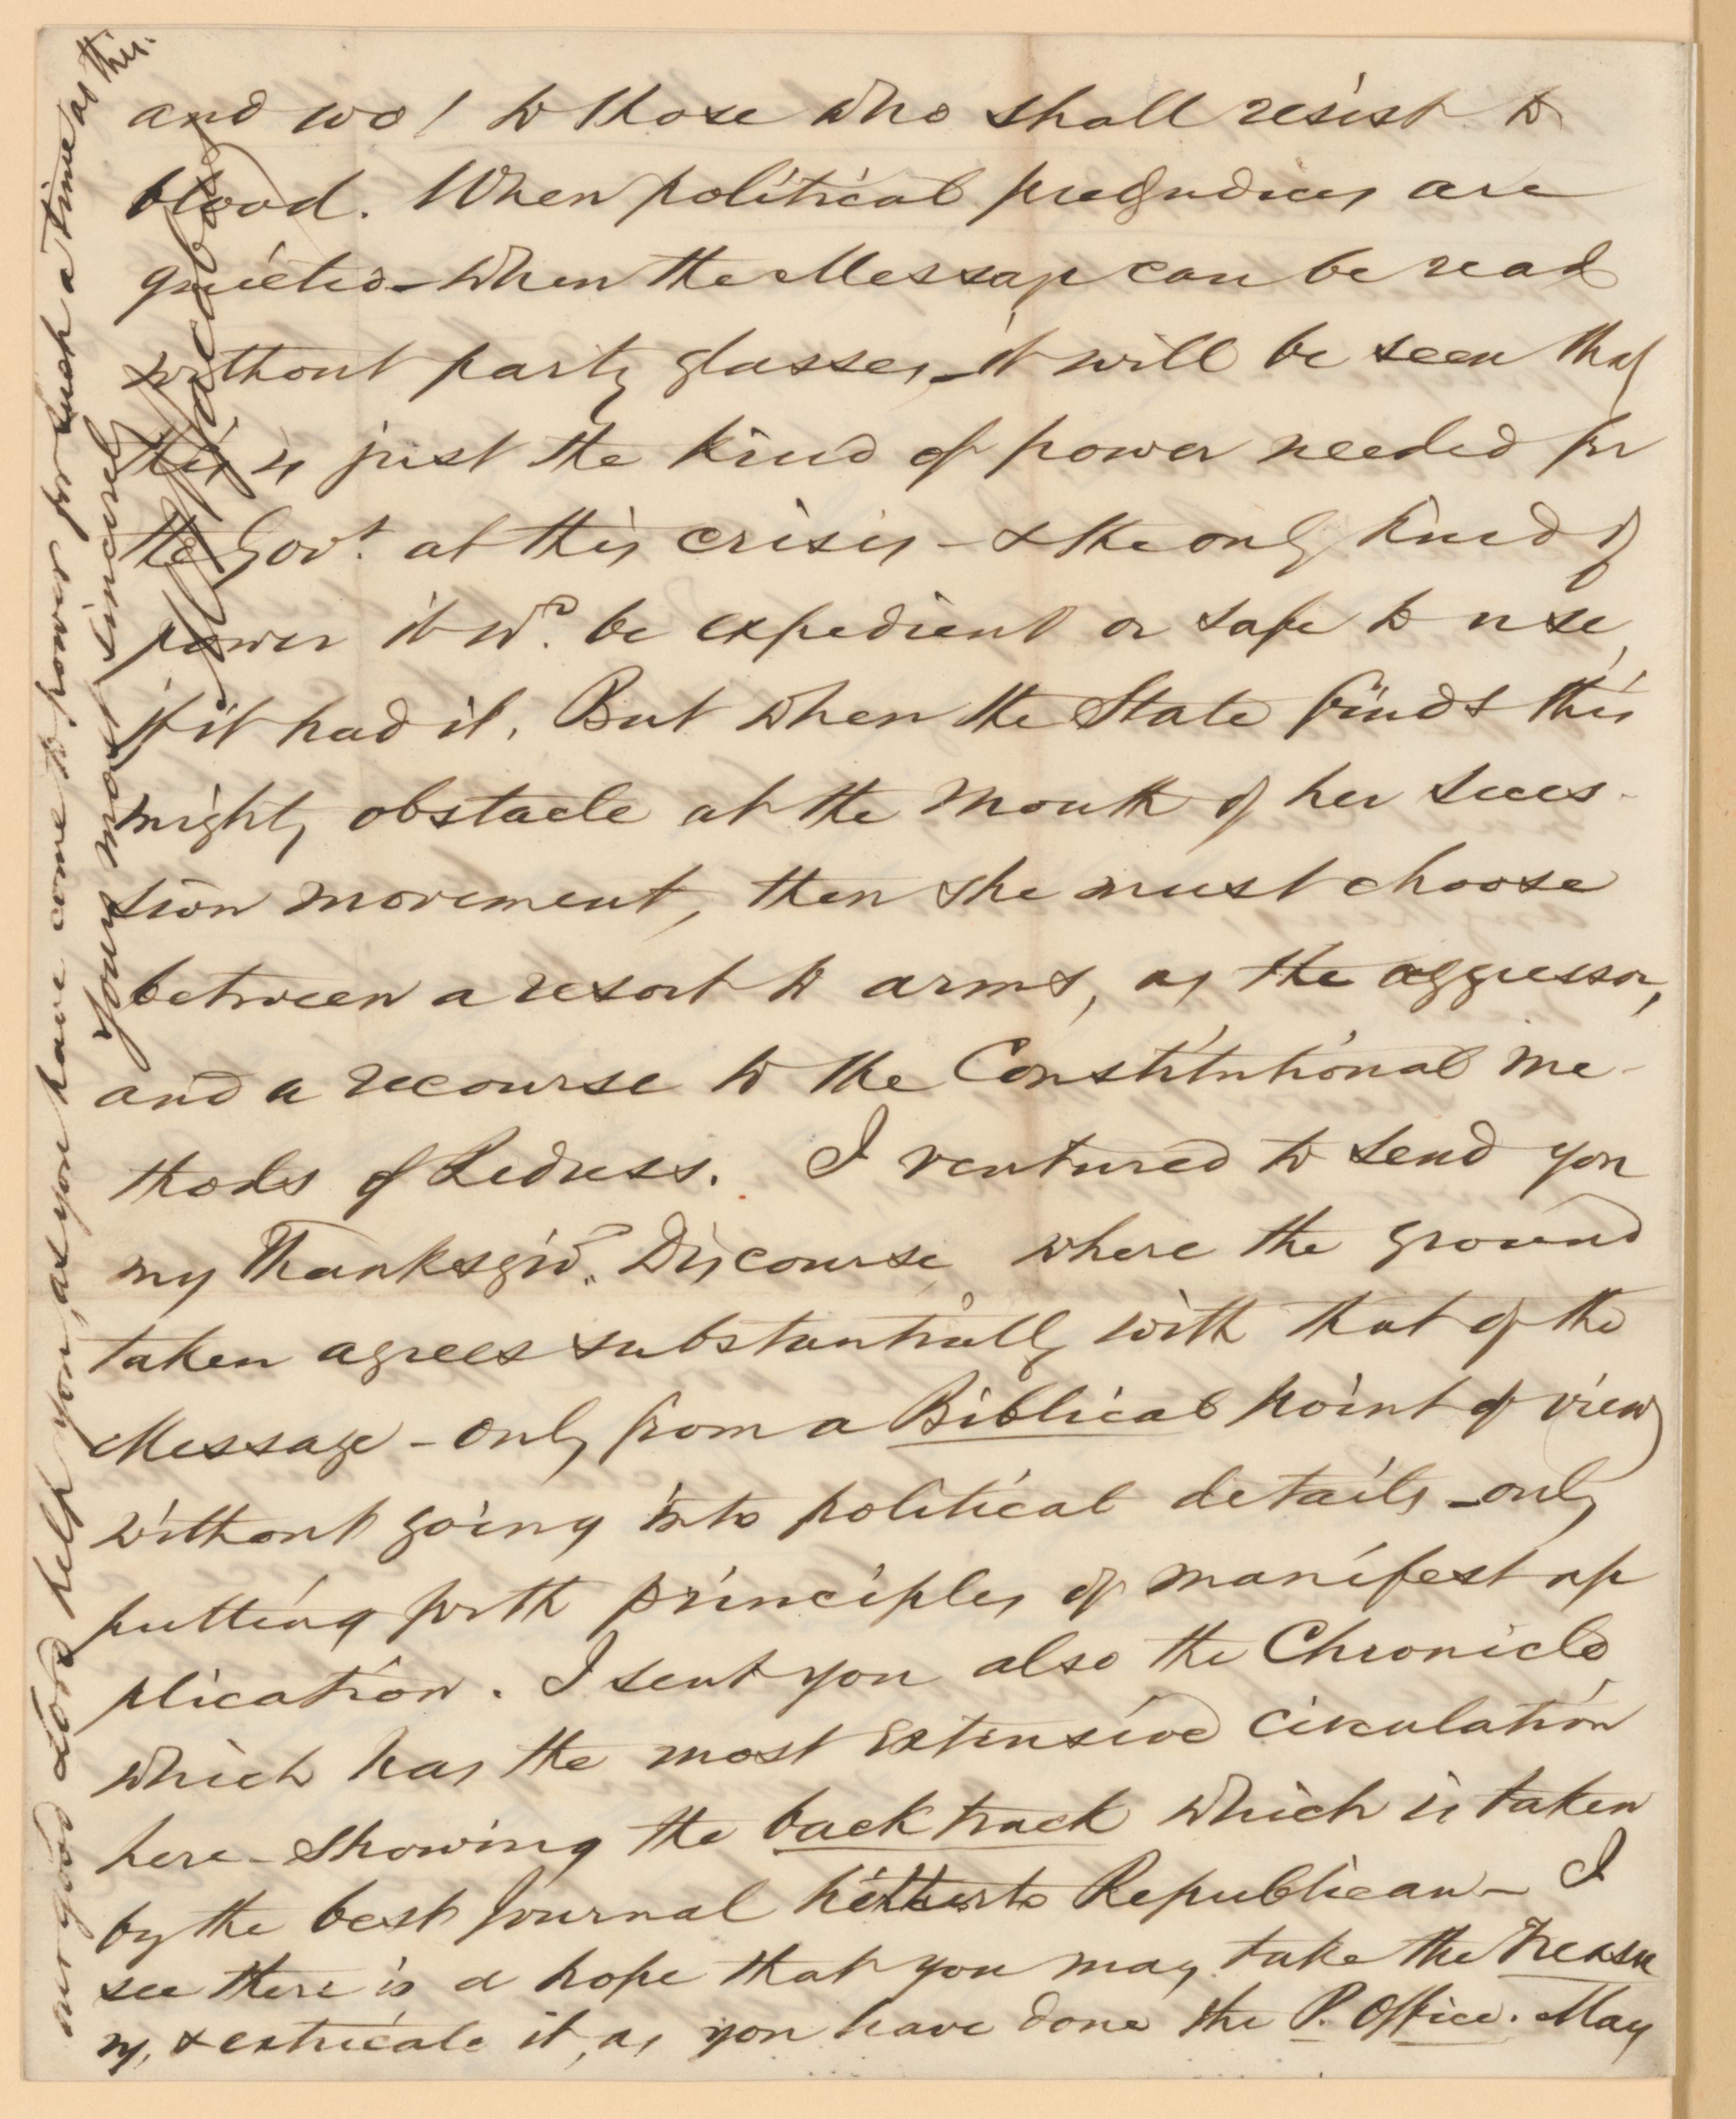 and wo! to those who shall resist to
blood. When political prejudices are
quieted – when the Message can be read
without party glasses, – it will be seen that
this is just the kind of power needed for
the Gov.t at this crisis – & the only kind of
power it w.d be expedient or safe to use,
if it had it. But when the State finds this
mighty obstacle at the mouth of her seces-
sion movement, then she must choose
between a resort to arms, as the aggressor,
and a recourse to the Constitutional me-
thods of Redress. I ventured to send you
my Thanksgiv.g Discourse where the ground
taken agrees substantially with that of the
Message – only from a Biblical point of view
without going into political details – only
putting forth principles of manifest ap
plication. I sent you also the Chronicle
which has the most extensive circulation
here – showing the back track which is taken
by the best journal hitherto Republican – I
see there is a hope that you may take the Treasu
ry, & extricate it, as you have done the P. Office. May
our good Lord help you, as you have come to power for such a time as this.
Yours most sincerely
Jacobus